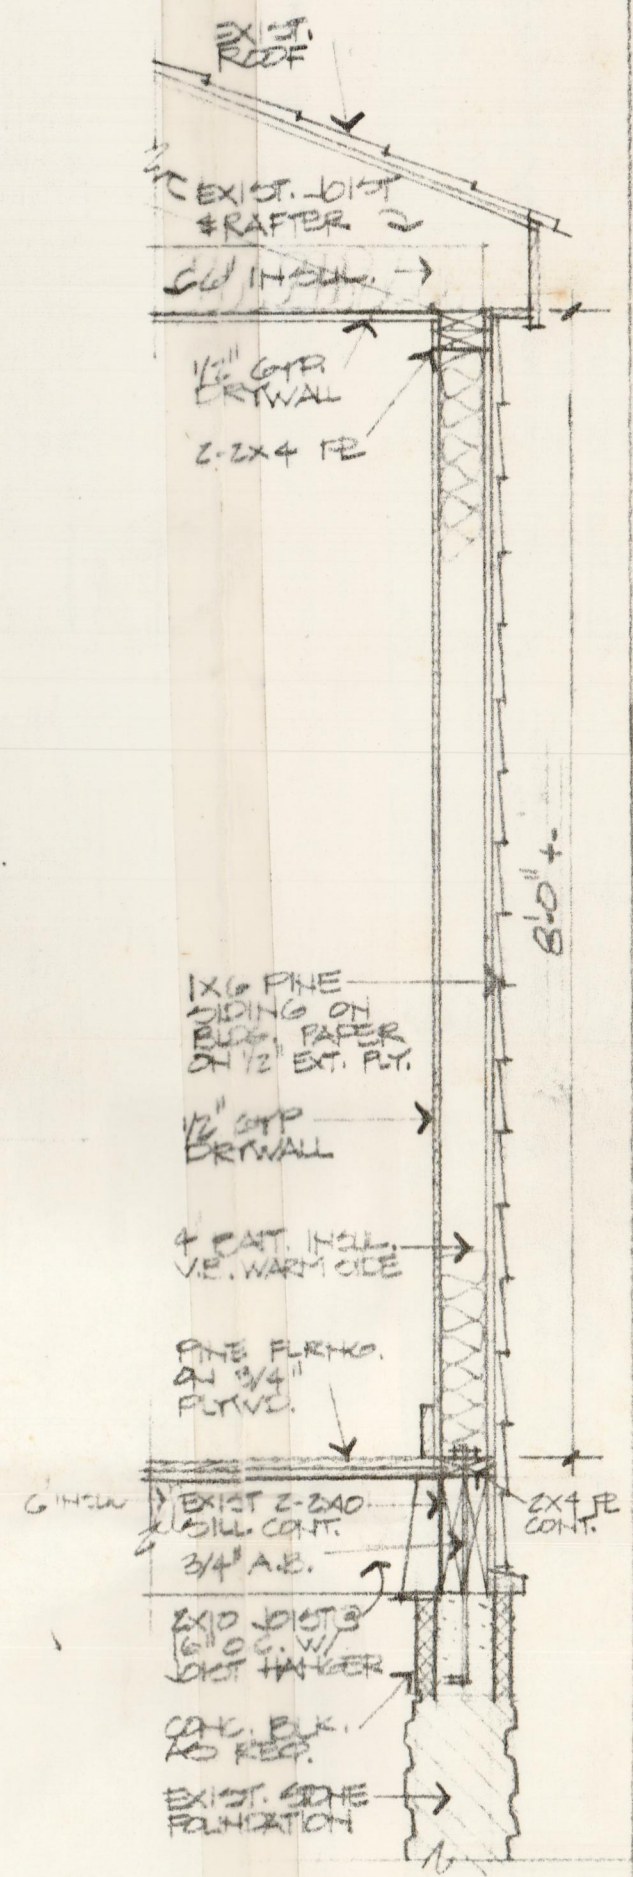 EXIST.
ROOF
EXIST. JOIST
& RAFTER
6" INSUL.
1/2" GYP.
DRYWALL
2-2X4 PL
8'-0" +-
1X6 PINE
SIDING ON
BLDG. PAPER
ON 1/2" EXT. PLY.
1/2" GYP
DRYWALL
4" BATT. INSUL.
V.B. WARM SIDE
PINE FLRNG.
ON 3/4"
PLYWD.
6" INSUL
EXIST 2-2X10
SILL CONT.
2X4 PL
CONT.
3/4" A.B.
2X10 JOIST @
16" O.C. W/
JOIST HANGER
CONC. BLK.
AS REQ.
EXIST. STONE
FOUNDATION